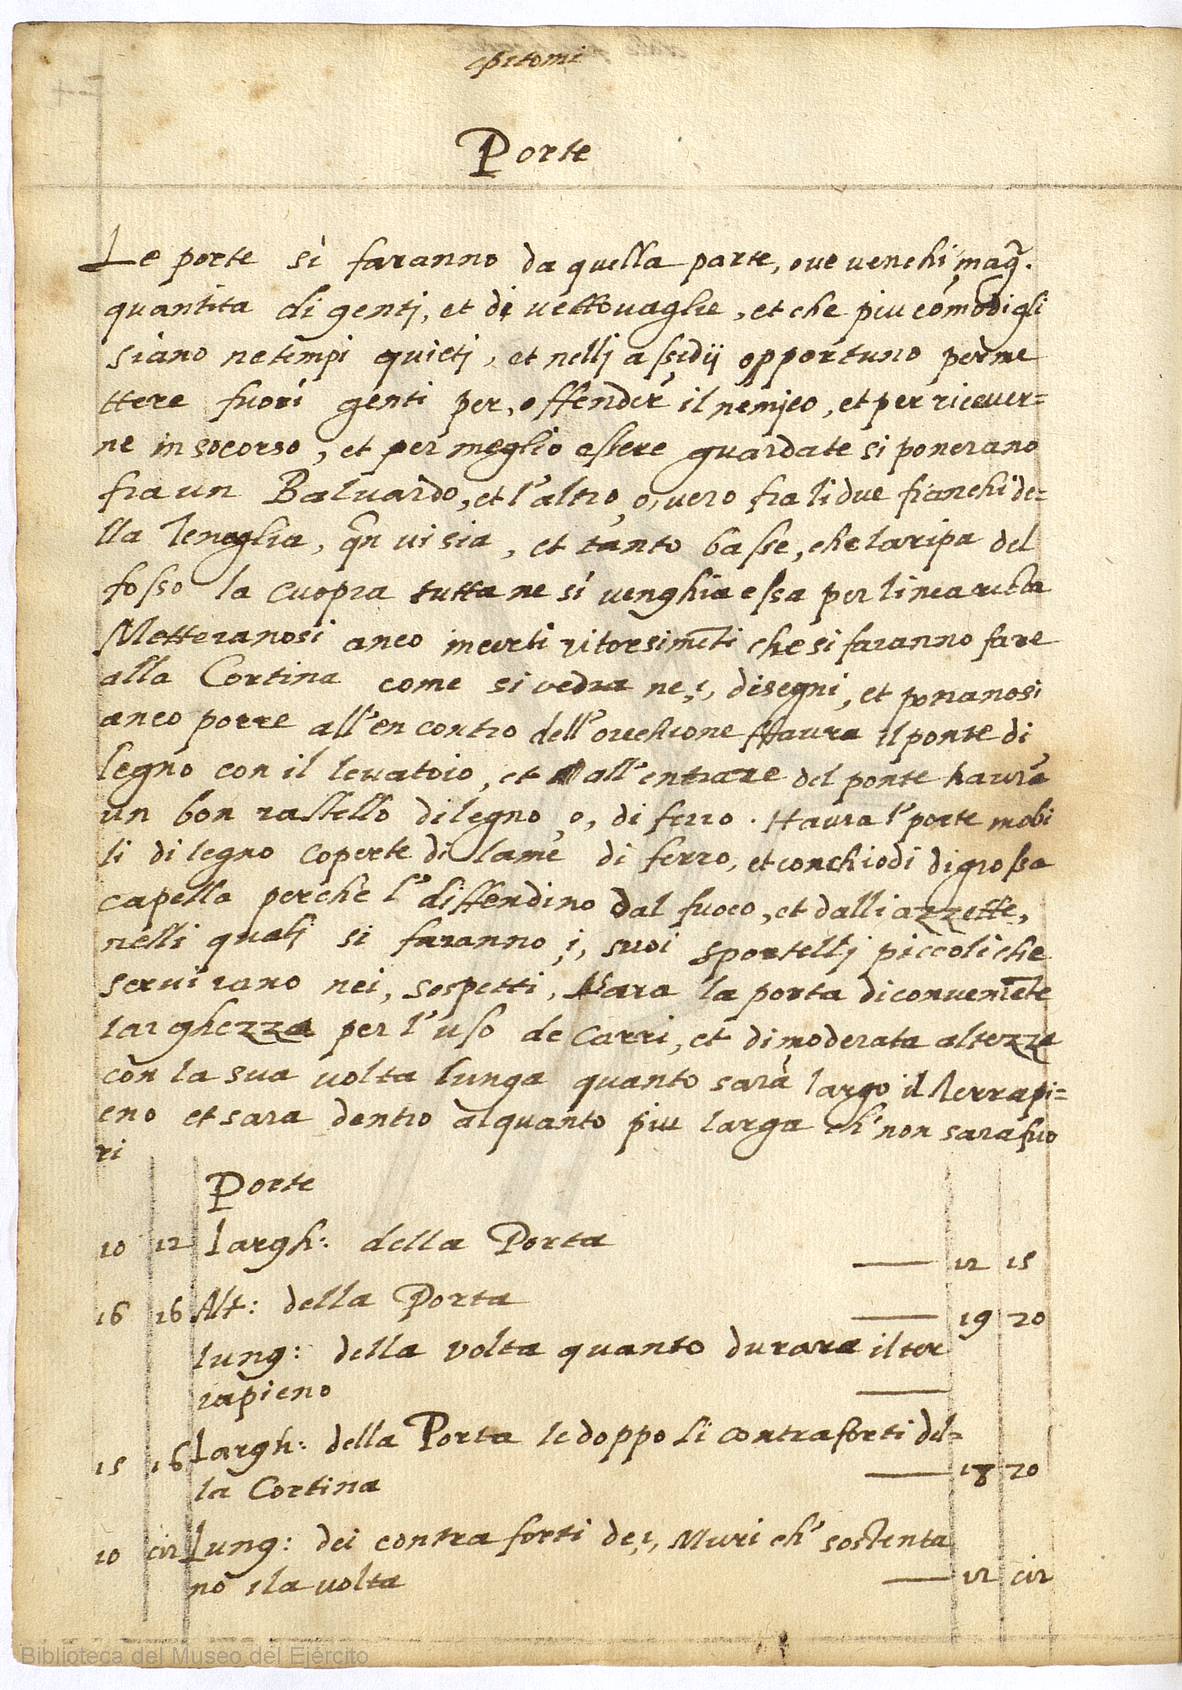 epitomi
Porte
Le porte si faranno da quella parte, ove venghi mag.
quantita di genti, et di vettovaglie, et che piu comodi gli
siano ne tempi quieti, et nelli assedij opportuno perme
ttere fuori genti per offender il nemico, et per ricever=
ne in socorso, et per meglio essere guardate si ponerano
fra un Baluardo, et l'altro, o, vero fra li due fianchi de=
lla Tenaglia, qn vi sia, et tanto basse, che la ripa del
fosso la cuopra tutta ne si venghia essa per linea recta
Metteranosi anco in certi ritorsimeti che si faranno fare
alla Cortina come si vedra ne, i, disegni, et potranosi
anco porre all'en contro dell'orechione Haura il ponte di
legno con il levatoio, et all'entrare del ponte haura
un bon rastello di legno, o, di ferro. Haura l'porte mobi
li di legno coperte di lame di ferro, et con chiodi di grossa
capella perche l'diffendino dal fuoco, et dalli azzette,
nelli quali si faranno, i, suoi sportelli piccoli che
servirano nei, sospetti, Sara la porta di conveniete
larghezza per l'uso de Carri, et di moderata altezza
con la sua volta lunga quanto sarà largo il Terrapi=
eno et sara dentro alquanto piu larga ch' non sara fuo
ri
Porte
10 12 Largh: della Porta — 12 15
16 16 Alt: della Porta — 19 20
Lung: della volta quanto durara il ter
rapieno —
15 16 Largh: della Porta le doppo li contraforti del=
la Cortina — 18 20
10 cir Lung: dei contraforti de, i, Muri ch' sostenta
no la volta — 12 cir
Biblioteca del Museo del Ejército